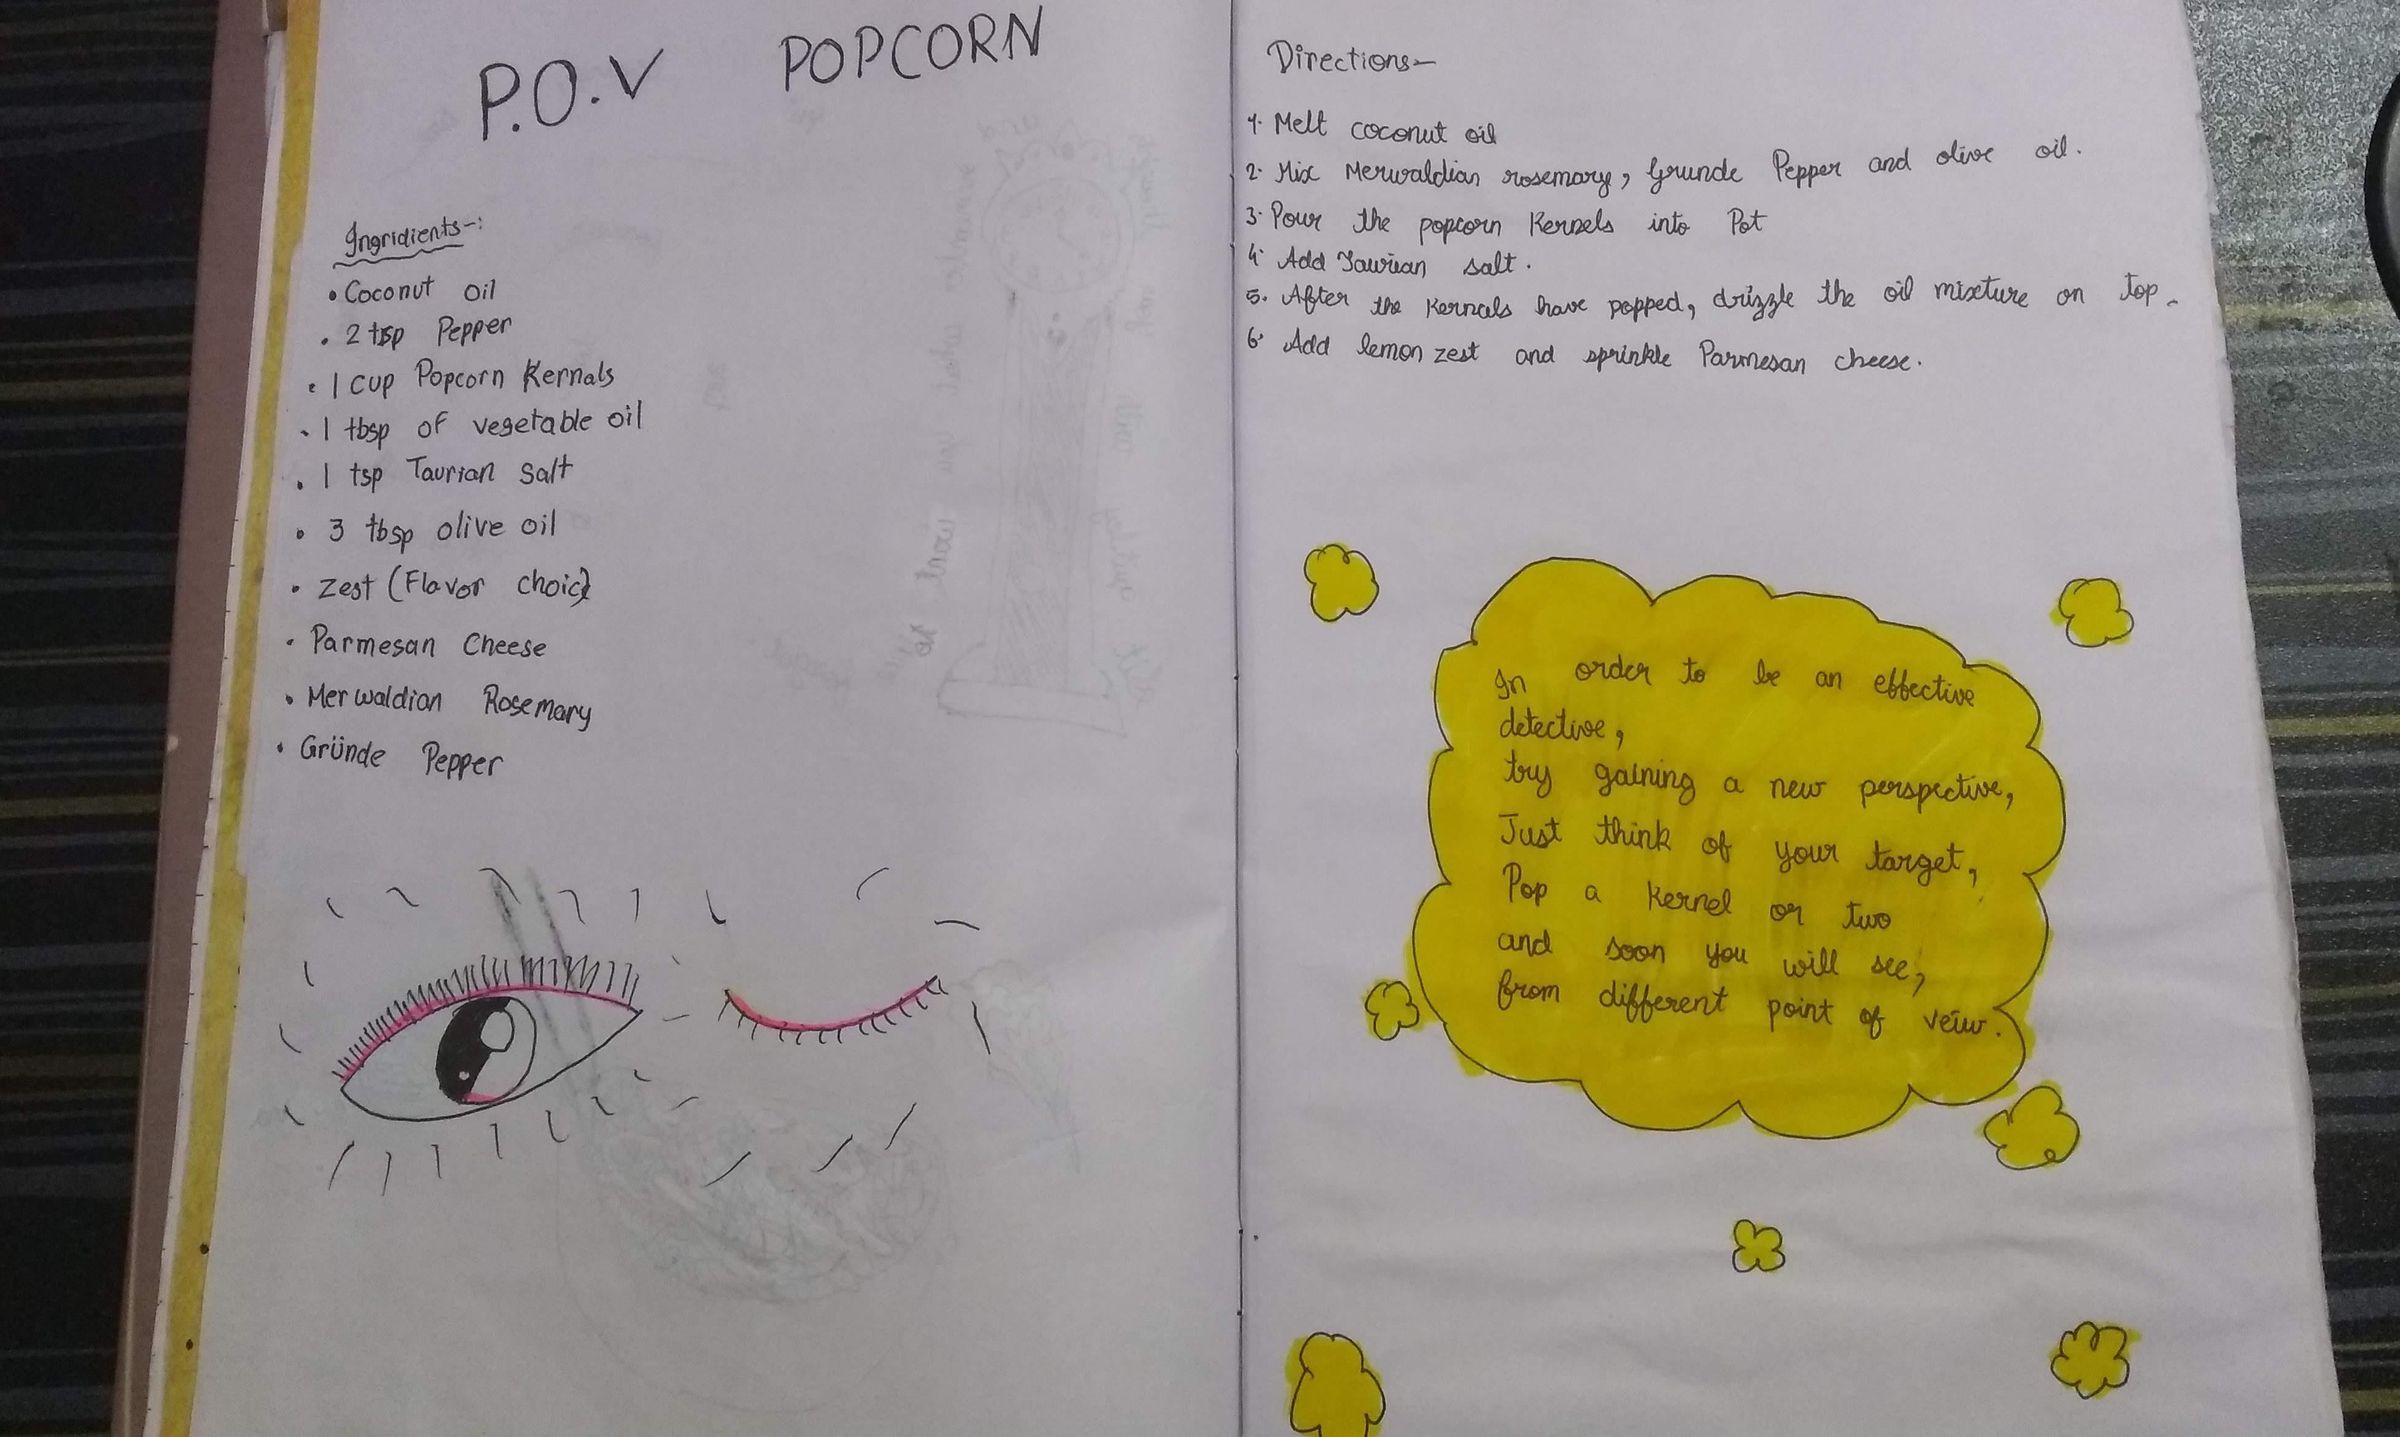 P.O.V POPCORN
Ingridients-:
• Coconut oil
• 2 tsp Pepper
• 1 cup Popcorn Kernals
• 1 tbsp of vegetable oil
• 1 tsp Taurian salt
• 3 tbsp olive oil
• Zest (Flavor choice)
• Parmesan Cheese
• Merwaldian Rosemary
• Gründe Pepper
Directions-
1. Melt coconut oil
2. Mix Merwaldian rosemary, Grunde Pepper and olive oil.
3. Pour the popcorn Kernels into Pot
4. Add Taurian salt.
5. After the Kernals have popped, drizzle the oil mixture on top.
6. Add lemon zest and sprinkle Parmesan cheese.
In order to be an effective
detective,
try gaining a new perspective,
Just think of your target,
Pop a kernel or two
and soon you will see,
from different point of veiw.